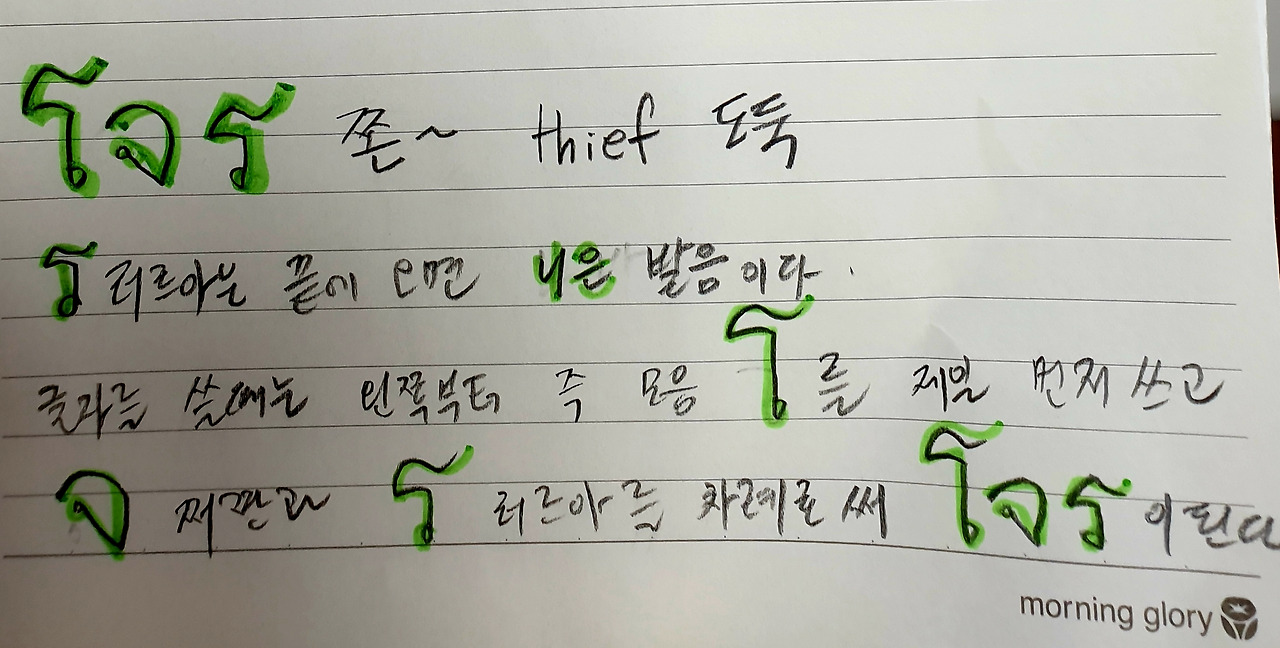 โจร 쫀~ thief 도둑
ร 러르아는 끝에 오면 니은 발음이다.
글자를 쓸때는 왼쪽부터 즉 모음 โ를 제일 먼저 쓰고
จ 쩌짠과 ร 러르아를 차례로 써 โจร이된다
morning glory